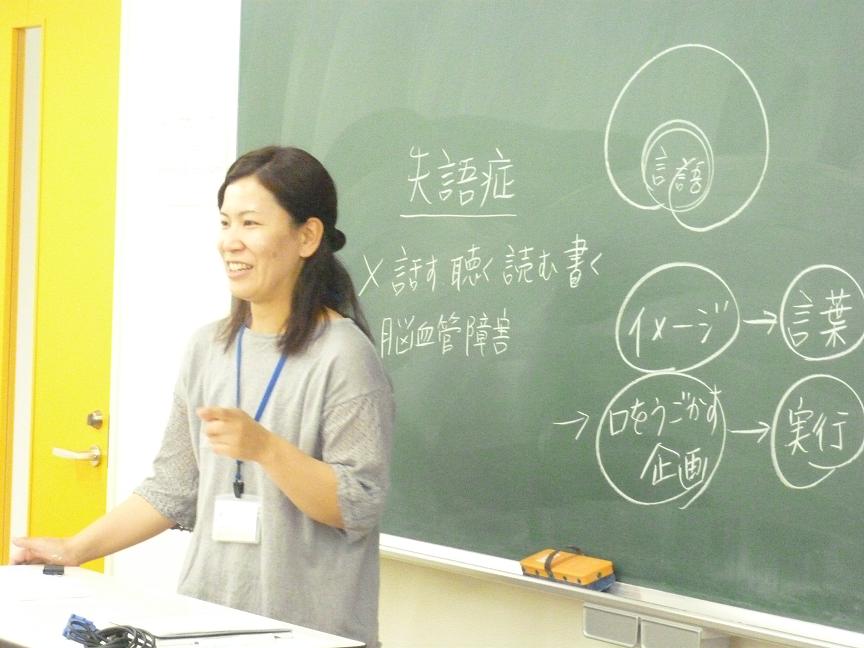 失語症
×話す聴く読む書く
脳血管障害
言語
イメージ→言葉
→口をうごかす企画→実行